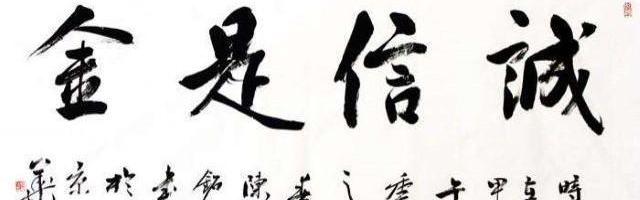 誠信是金
時在甲午之春陳銘書於京華